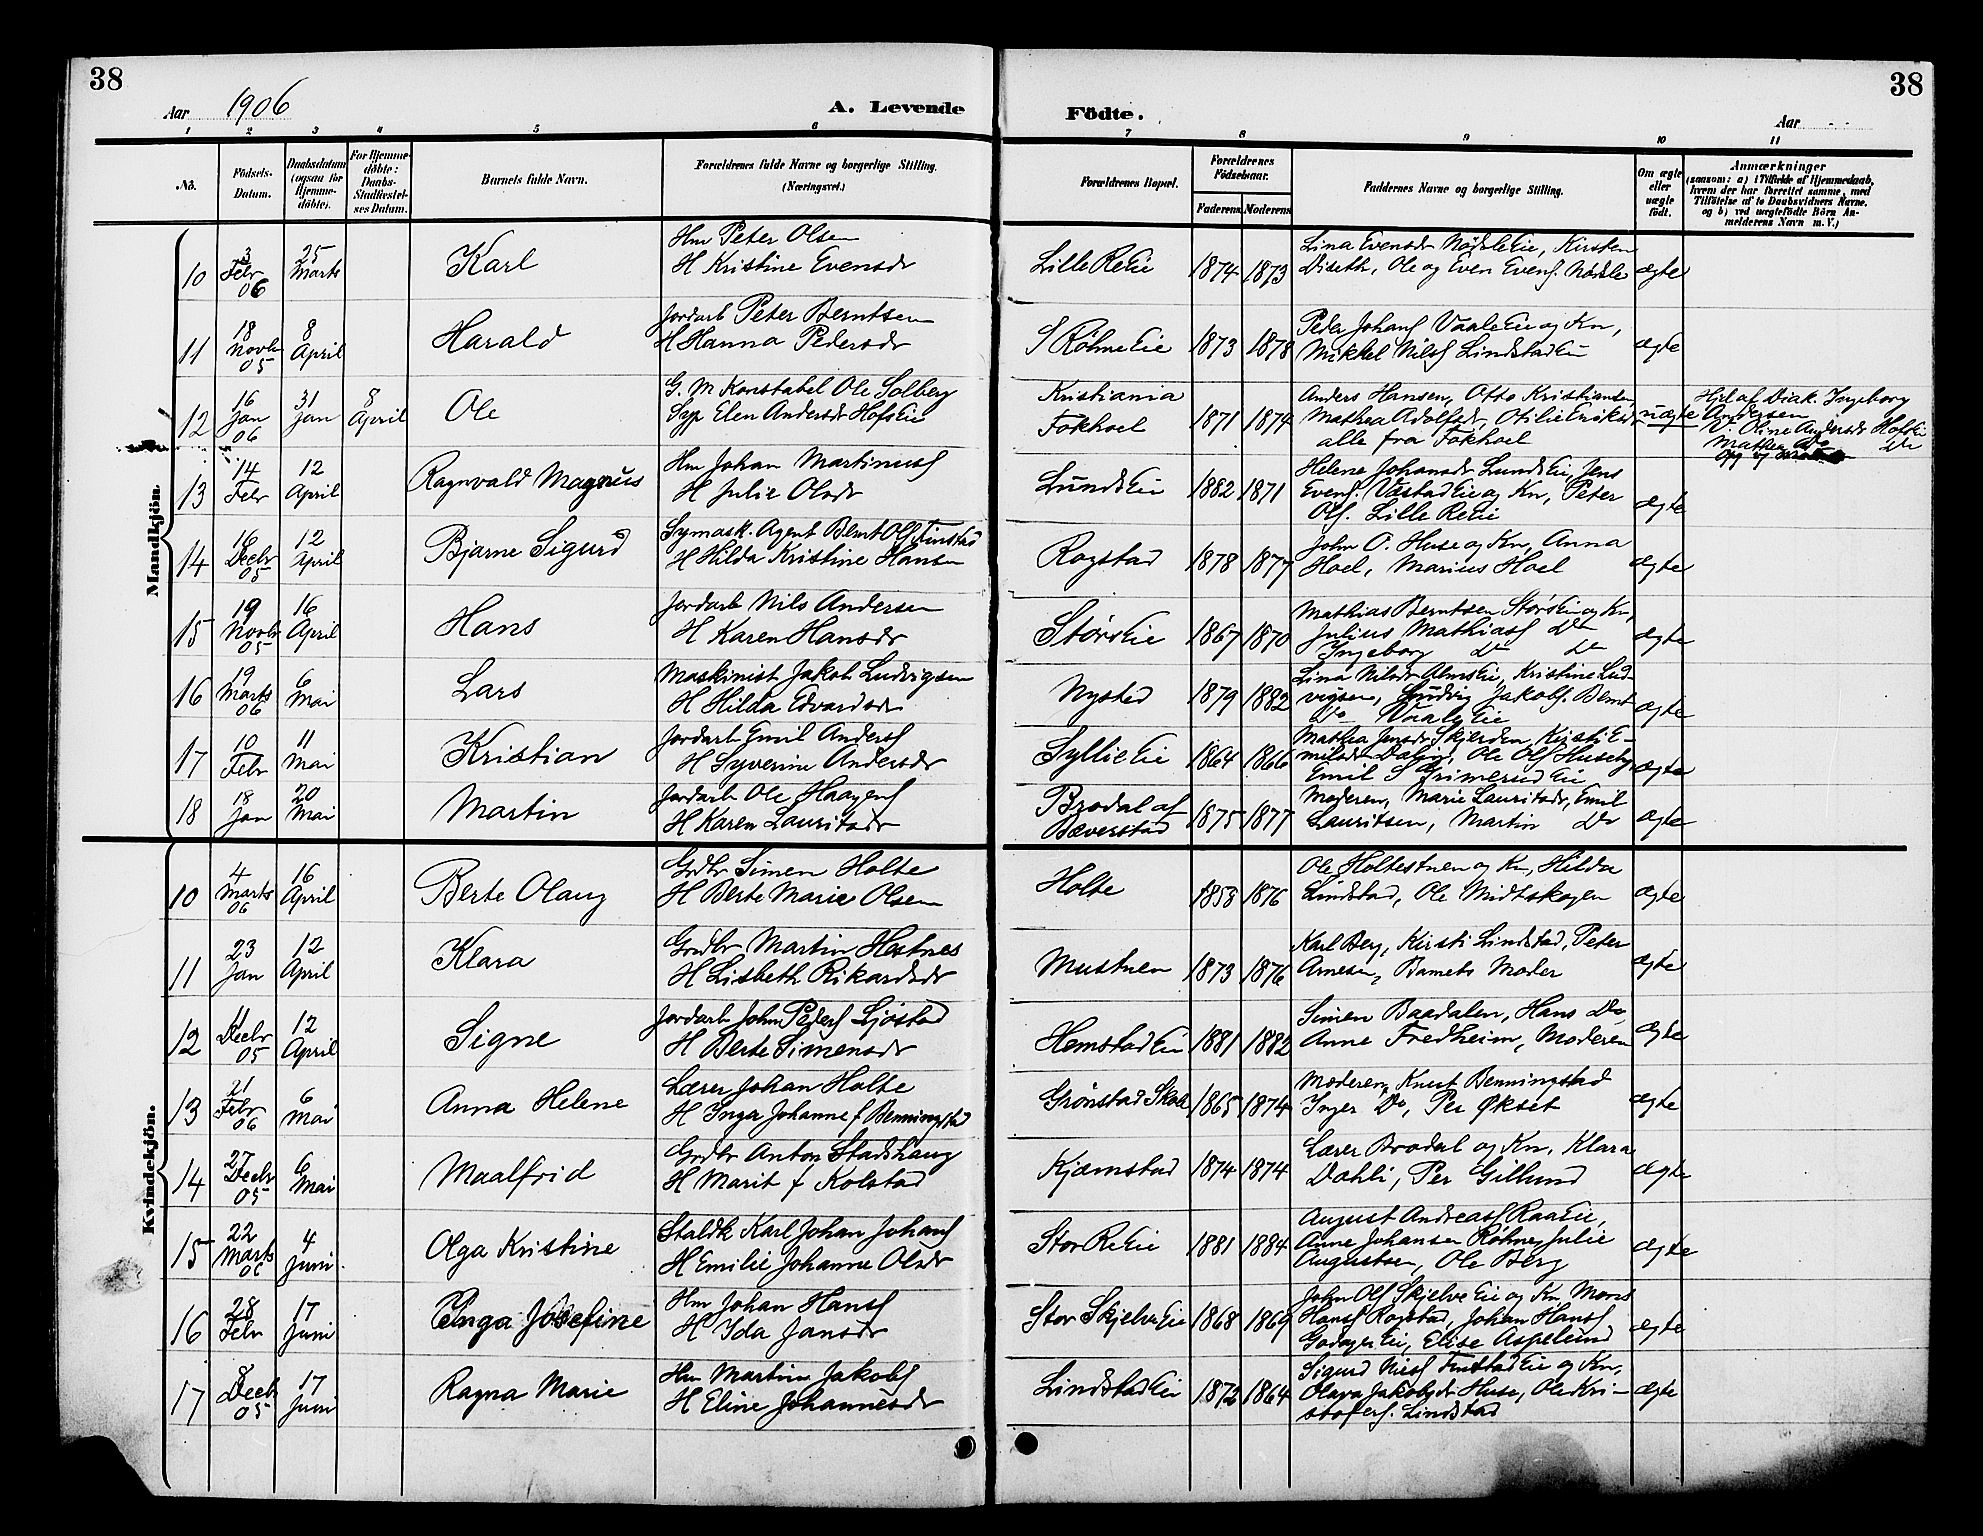 38
38
Aar 1906
A. Levende
Födte.
Aar
1 2 3 4 5 6 7 8 9 10 11
No.
Födsels-Datum.
Daabsdatum (ogsaa for Hjemmedöbte).
For Hjemmedöbte: Daabs-Stadfæstelses Datum.
Barnets fulde Navn.
Forældrenes fulde Navne og borgerlige Stilling. (Næringsvei.)
Forældrenes Bopæl.
Forældrenes Födselsaar.
Faderens. Moderens.
Faddernes Navne og borgerlige Stilling.
Om ægte eller uægte födt.
Anmærkninger
(saasom: a) i Tilfælde af Hjemmedaab, hvem der har forrettet samme, med Tilföielse af to Daabsvidners Navne, og b) ved uægtefödte Börn Anmelderens Navn m. V.)
Mandkjön.
10 3 Febr 06 25 Marts Karl
Hm Peter Olsen
H Kristine Evensdr
Lille Re Eie 1874 1873
Lina Evensdr Nøkle Eie, Kirsten
Diseth, Ole og Even Evens. Nøkle
ægte
11 18 Novbr 05 8 April Harald
Jordarb Peter Berntsen
H Hanna Pedersdr
S Røhne Eie 1873 1878
Peder Johans Vaale Eie og Kn,
Mikkel Nils Lindstad Eie
ægte
12 16 Jan 06 31 Jan 8 April Ole
G. M. Konstabel Ole Solberg
Syp Elen Andersdr Hofs Eie
Kristiania
Fokhoel 1871 1874
Anders Hansen, Otto Kristiansen
Mathea Adolfsdr, Otilie Eriksdr
alle fra Fokhoel
uægte
Hjd af Diak. Ingeborg
Andersen
V. Oline Andersdr Hofs Eie
Mathea Do Do
13 14 Febr 12 April Ragnvald Magnus
Hm Johan Martinus
H Julie Olsdr
Lunds Eie 1882 1871
Helene Johansdr Lunds Eie, Jens
Evens. Væstad Eie og Kn, Peter
Ols. Lille Re Eie
ægte
14 16 Decbr 05 12 April Bjarne Sigurd
Symask. Agent Bernt Ols Finstad
H Hilda Kristine Hansen
Rogstad 1878 1877
John O. Huse og Kn, Anna
Hoel, Marius Hoel
ægte
15 19 Novbr 05 16 April Hans
Jordarb Nils Andersen
H Karen Hansdr
Størs Eie 1867 1870
Mathias Berntsen Størs Eie og Kn,
Julius Mathias Do
Ingeborg Do Do
ægte
16 19 Marts 06 6 Mai Lars
Maskinist Jakob Ludvigsen
H Hilda Edvardsdr
Nysted 1879 1882
Lina Nilsdr Alms Eie, Kristine Lud-
vigsen, Ludvig Jakobs. Bernt
Do Vaale Eie
ægte
17 10 Febr 11 Mai Kristian
Jordarb Emil Anders
H Syverine Andersdr
Syllie Eie 1864 1866
Mathea Jensdr Skjerden, Kirsti E-
milsdr Dalby, Ole Ols Huseby,
Emil S Grimerud Eie
ægte
18 18 Jan 20 Mai Martin
Jordarb Ole Haagens
H Karen Lauritsdr
Brodal af
Bæverstad 1875 1877
Moderen, Marie Lauritsdr, Emil
Lauritsen, Martin Do
ægte
Kvindekjön.
10 4 Marts 06 16 April Berte Olaug
Grdbr Simen Holte
H Berte Marie Olsen
Holte 1858 1876
Ole Holtestuen og Kn, Hilda
Lindstad, Ole Midtskogen
ægte
11 23 Jan 12 April Klara
Grdbr Martin Høtnes
H Lisbeth Rikardsdr
Mustuen 1873 1876
Karl Berg, Kirsti Lindstad, Peter
Arnesen, Barnets Moder
ægte
12 11 Decbr 05 12 April Signe
Jordarb John Peders Ljøstad
H Berte Simensdr
Hemstad Eie 1881 1882
Simen Baadalen, Hans Do,
Anne Fredheim, Moderen
ægte
13 21 Febr 06 6 Mai Anna Helene
Lærer Johan Holte
H Inga Johanne f Benningstad
Grønstad Skole 1865 1874
Moderen, Knut Benningstad
Inger Do, Per Økset
ægte
14 27 Decbr 05 6 Mai Maalfrid
Grdbr Anton Stadshaug
H Marit f Kolstad
Kjæmstad 1874 1874
Lærer Brodal og Kn, Klara
Dahli, Per Gillund
ægte
15 22 Marts 06 4 Juni Olga Kristine
Staldk Karl Johan Johans
H Emilie Johanne Olsdr
Stor Re Eie 1881 1884
August Andreas Raa Eie,
Anne Johansen Røhne, Julie
Augustsen, Ole Berg
ægte
16 28 Febr 17 Juni Inga Josefine
Hm Johan Hans
H Ida Jansdr
Stor Skjelve Eie 1868 1869
John Ols Skjelve Eie og Kn Mons
Hans Rogstad, Johan Hans
Godager Eie, Elise Aspelund
ægte
17 8 Decbr 05 17 Juni Ragna Marie
Hm Martin Jakobs
H Eline Johannesdr
Lindstad Eie 1872 1864
Sigurd Niels Finstad Eie og Kn,
Olava Jakobsdr Huse, Ole Kri-
stofers. Lindstad
ægte